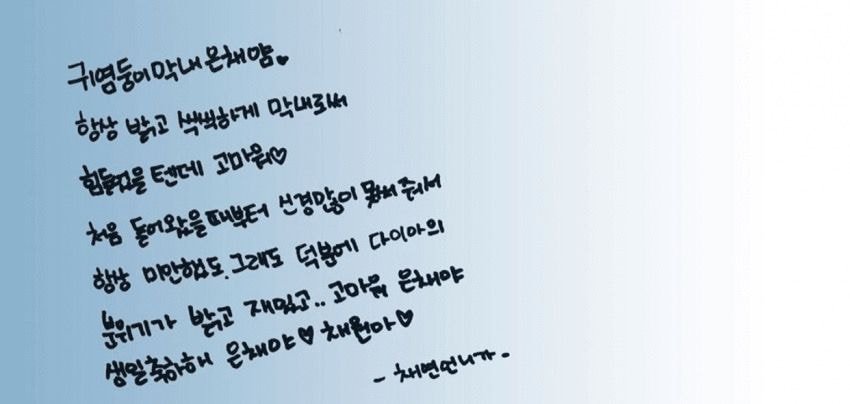 귀염둥이 막내 은채얌♥
항상 밝고 씩씩하게 막내로써
힘들었을텐데 고마워♡
처음 들어왔을때부터 신경많이 못써줘서
항상 미안해도. 그래도 덕분에 다이아의
분위기가 밝고 재밌고.. 고마워 은채야
생일축하해 은채야♥ 채원아♡
- 채연언니가 -